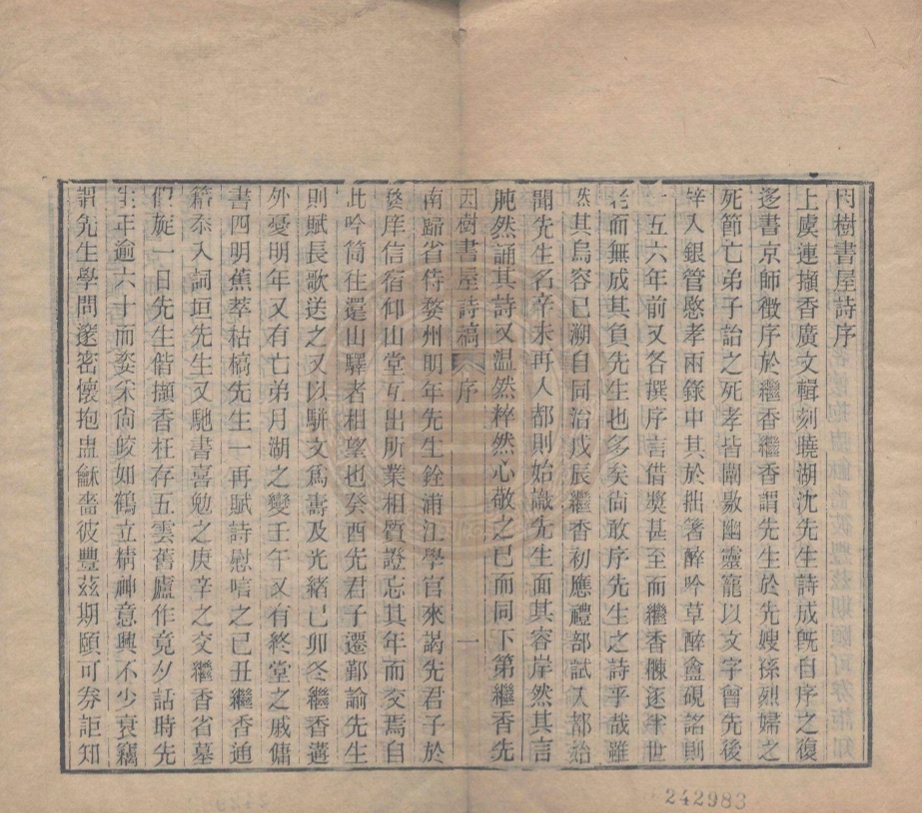 因樹書屋詩序
上虞連擷香廣文輯刻曉湖沈先生詩成旣自序之復
迻書京師徵序於繼香繼香謂先生於先嫂孫烈婦之
死節亡弟子詒之死孝皆闡敭幽靈寵以文字曾先後
錄入銀管愍孝兩錄中其於拙箸醉吟草醉盦硯銘則
十五六年前又各撰序言借奬甚至而繼香棟迻半世
老而無成其負先生也多矣尙敢序先生之詩乎哉雖
然其烏容已溯自同治戊辰繼香初應禮部試入都始
聞先生名辛未再入都則始識先生面其容岸然其言
肫然誦其詩又温然粹然心敬之已而同下第繼香先
因樹書屋詩稿 序 一
南歸省侍婺州明年先生銓浦江學官來謁先君子於
婺庠信宿仰山堂互出所業相質證忘其年而交焉自
此吟筒往還山驛者相望也癸酉先君子遷鄞諭先生
則賦長歌送之又以駢文爲壽及光緒己卯冬繼香遘
外憂明年又有亡弟月湖之變壬午又有終堂之戚傭
書四明蕉萃枯槁先生一再賦詩慰唁之已丑繼香通
籍忝入詞垣先生又馳書喜勉之庚辛之交繼香省墓
假旋一日先生偕擷香枉存五雲舊廬作竟夕話時先
生年逾六十而姿宋尙皎如鶴立精神意興不少衰竊
謂先生學問邃密懷抱盅龢嗇彼豐茲期頤可券詎知
242983